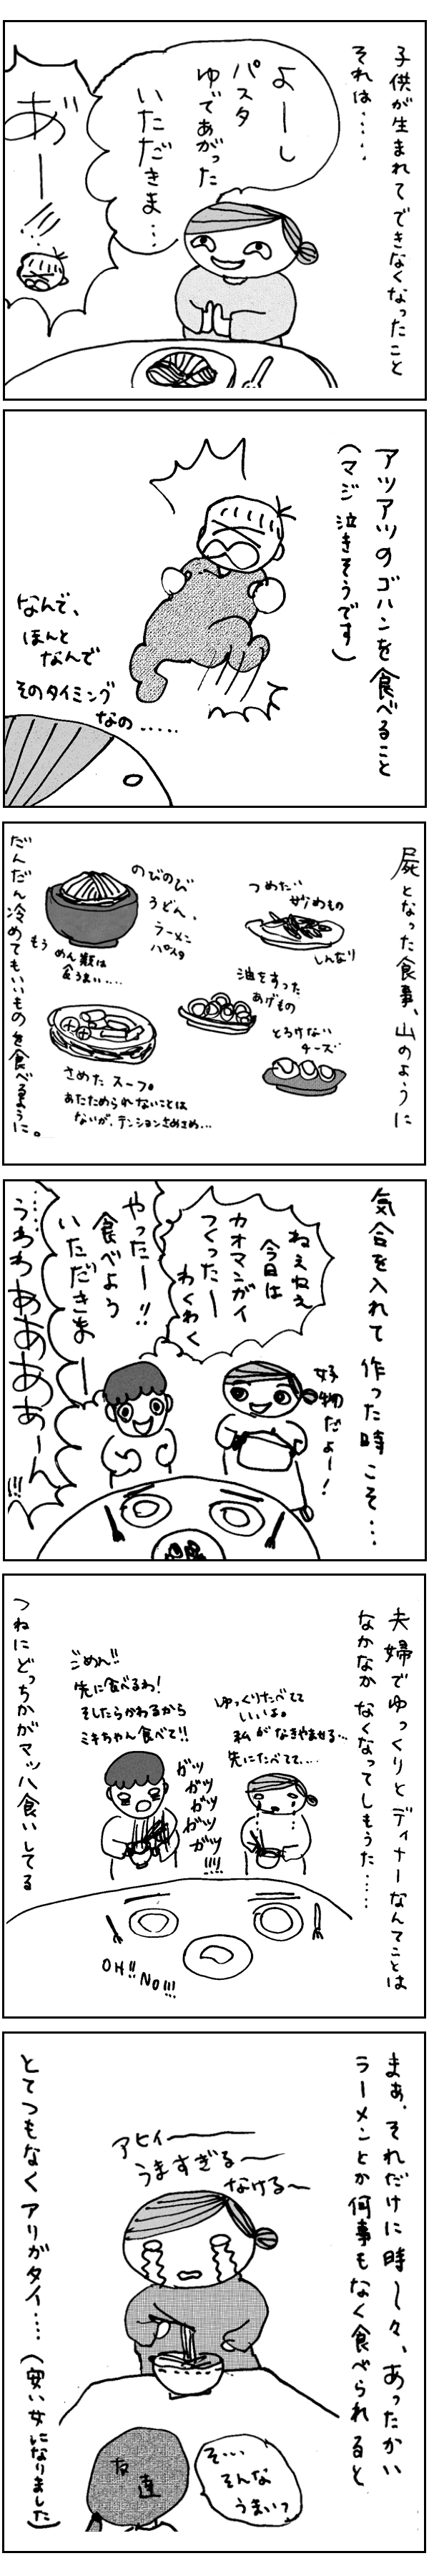 子供が生まれてできなくなったこと
それは・・・・・
よーし
パスタ
ゆであがった
いただきま・・・
あ゛ー
アツアツのゴハンを食べること
（マジ泣きそうです）
なんで、
ほんと
なんで
そのタイミング
なの・・・・・
屍となった食事、山のように
つめたい
炒めもの
しんなり
のびのび
うどん、
ラーメン
パスタ
もう
めん類は
食うまい・・・・
油をすった
あげもの
とろけない
チーズ
さめた スープ。
あたためられないことは
ないが、テンションさめさめ・・・
だんだん冷めてもいいものを食べるように。
気合を入れて 作った時こそ・・・
ねぇねぇ
今日は
カオマンガイ
つくったー
わくわく
好物だよー！
やったー！！
食べよう
いただきまー
・・・・うわわーああああーん!!!
夫婦でゆっくりとディナーなんてことは
なかなか なくなってしもうた・・・・・
ゆっくりたべてて
いいよ。
私がなきやませる・・・
先にたべてて・・・・
ごめん!!
先に食べるわ！
そしたらかわるから
ミキちゃん食べて!!
ガッ
ガッ
ガッ
ガッ
ガッ
!!!!
OH!! NO!!!
つねにどっちかがマッハ食いしてる
まぁ、それだけに時々、あったかい
ラーメンとか何事もなく食べられると
アヒィーーー
うますぎるー
なける〜
そ・・・
そんな
うまい？
友達
とてつもなくアリガタイ・・・・（安い女になりました）